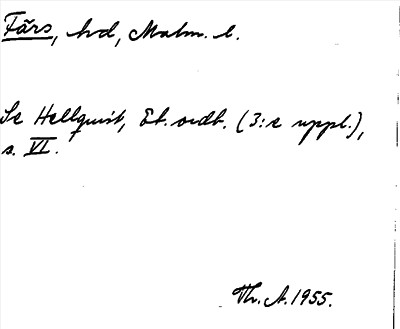 Färs, hd, Malm. l.
Se Hellquist, Et. ordb. (3:e uppl.),
s. VI.
Th. A. 1955.